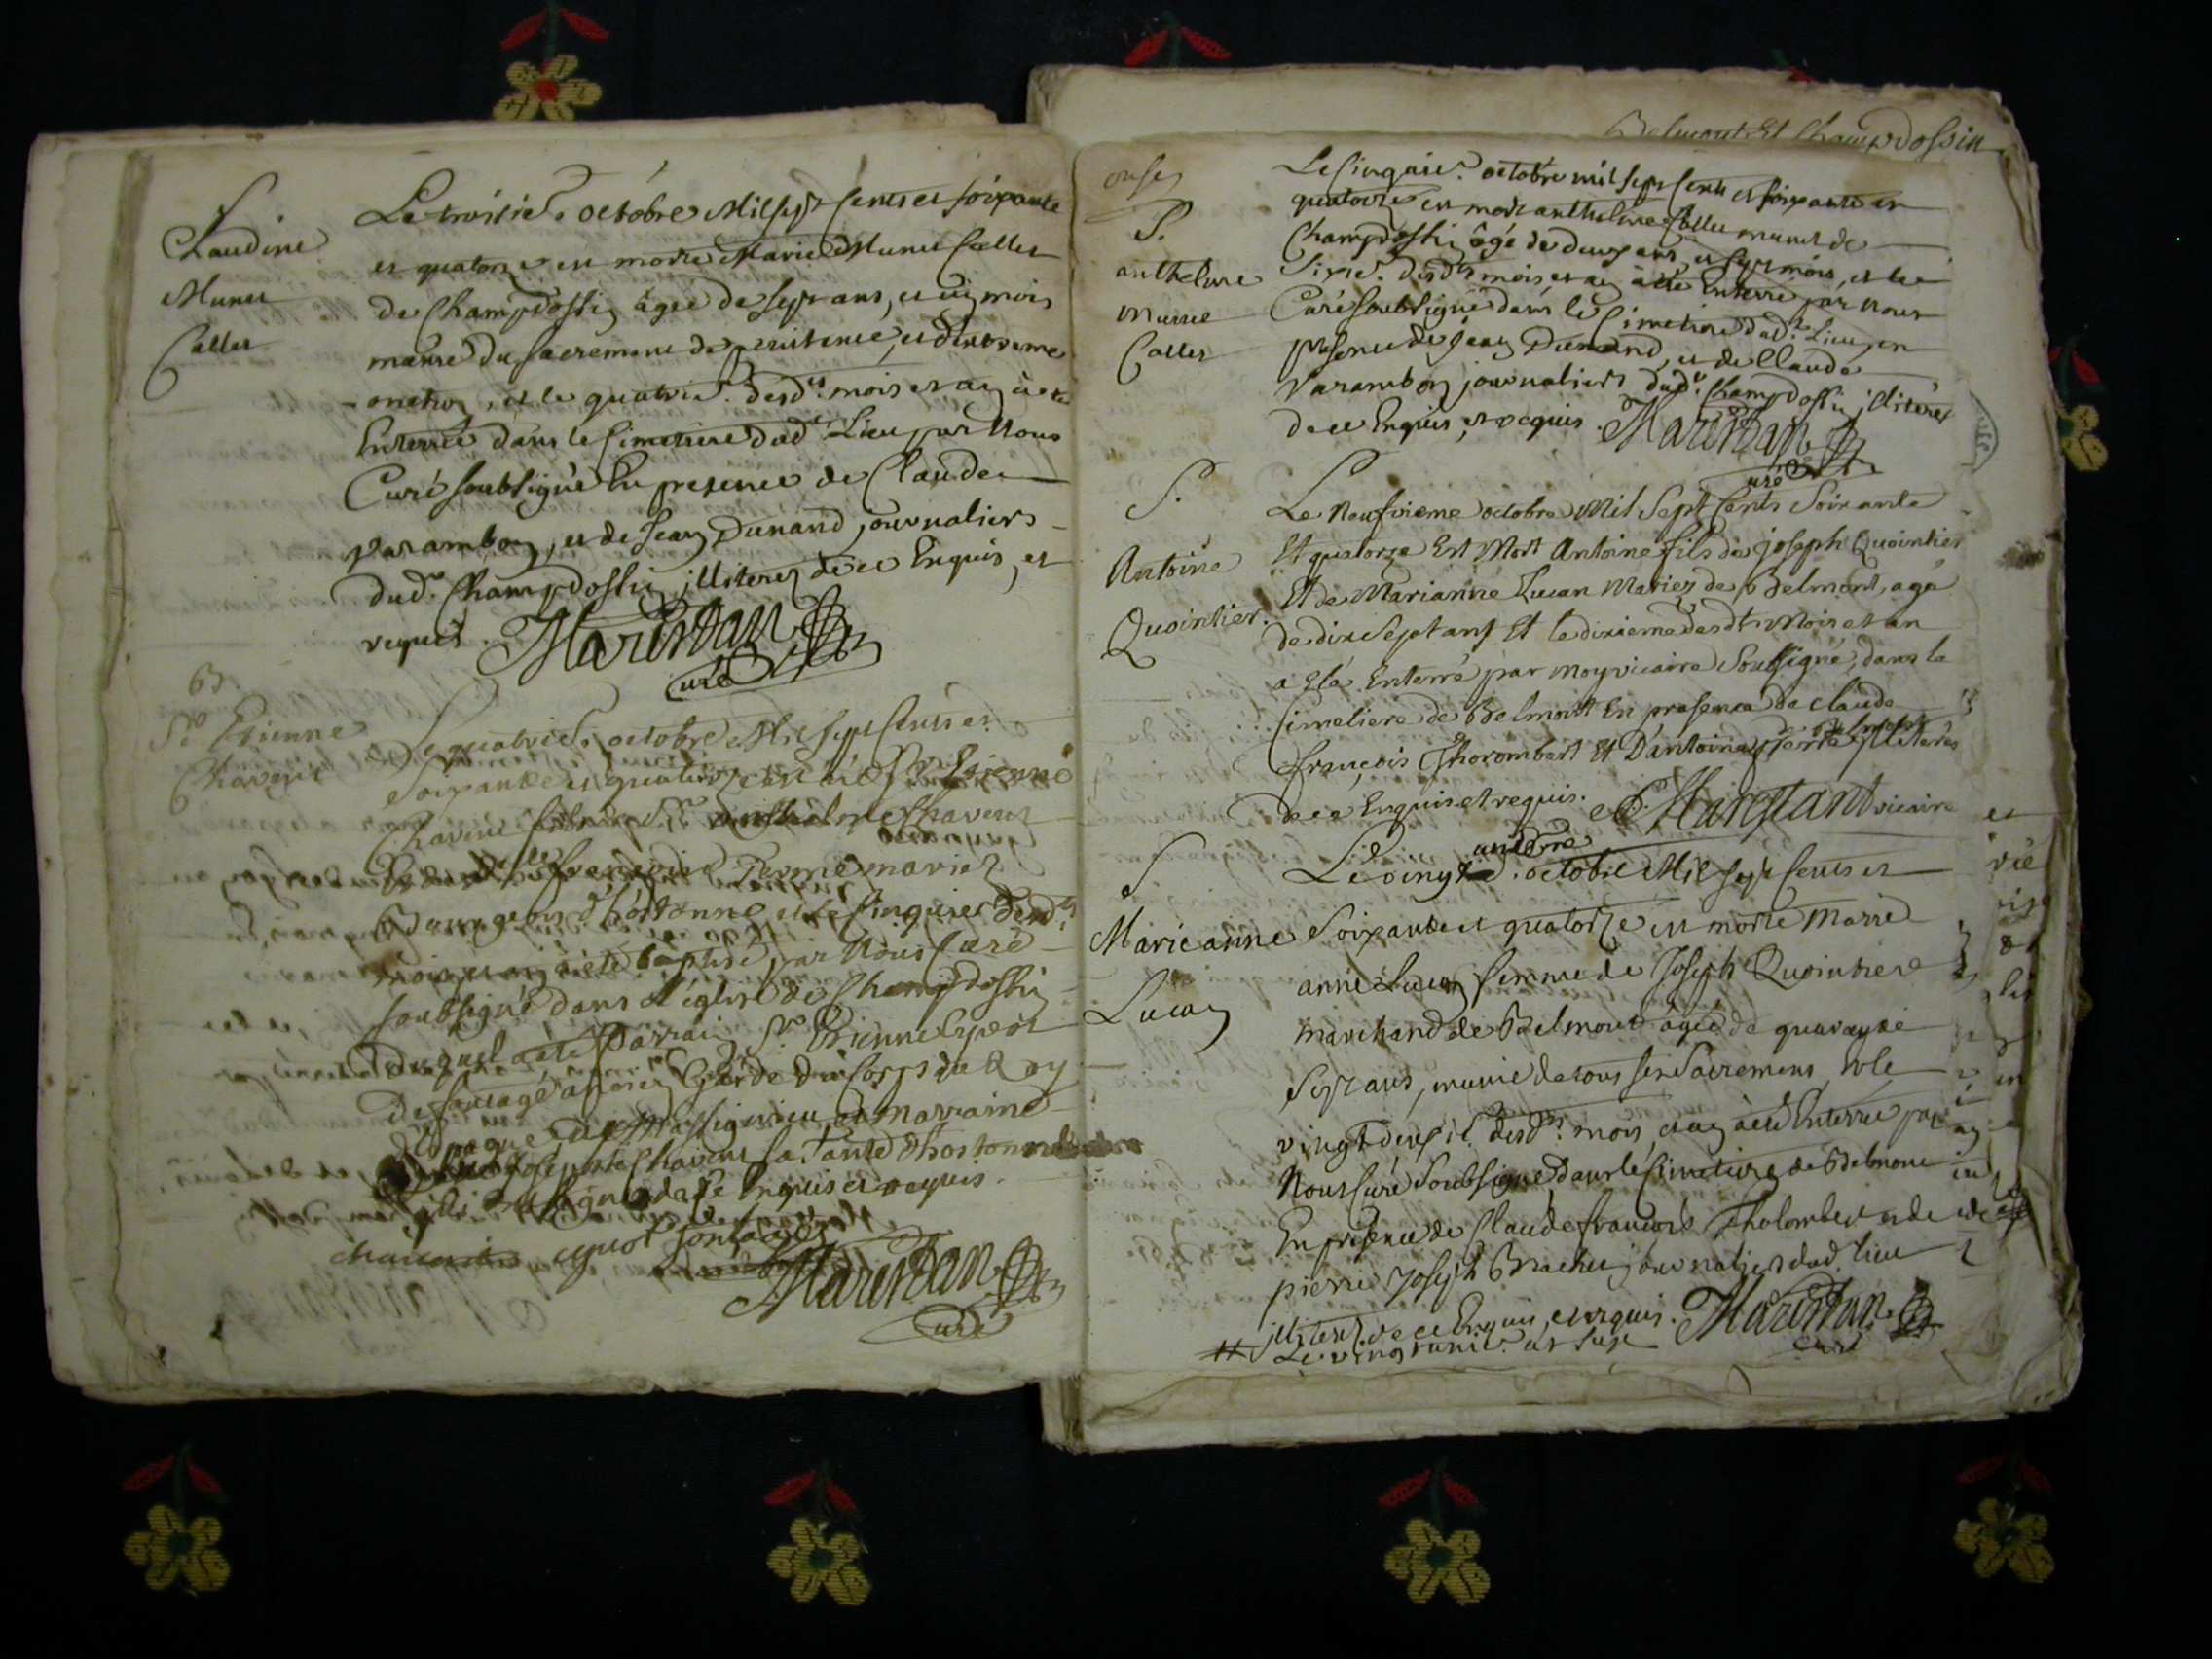 S
Claudine
Munet
Callet
Le troisie. octobre Mil sept cents et soixante
et quatorze est morte Marie Munet Callet
de Champdossin agée de sept ans, et six mois
munie du sacrement de penitence, et d'extreme
onction, et le quatrie. desdts mois et an à eté
Enterrée dans le Cimetiere dudt Lieu par Nous
Curé soubsigné En presence de Claude
Varambon, et de Jean Dunand journaliers
dudt Champdossin illiterez de ce Enquis, et
requis. Marestan
Curé
B.
Sr Etienne
Chavent
Le quatrie. octobre Mil sept cents et
soixante et quatorze est né Sr Etienne
Chavent fils de Sr anthelme Chavent
et de dlle françoise Ferme mariez
Bourgeois d'hostonne et le cinquie. desdts
mois et an à eté baptisé par Nous Curé
soubsigné dans l'église de Champdossin
duquel a eté Parrain Sr Etienne
Garde du Corps du Roy
d'Espagne de Massignieu, et marraine
Josephte Chavent sa Tante d'hostonne
de ce Enquis et requis.
Marestan
Curé
Belmont Et Champdossin
onse
S.
anthelme
Munet
Callet
Le cinquie. octobre mil sept cents et soixante et
quatorze est mort anthelme Callet munet de
Champdossin âgé de deux ans, et sept mois, et le
sixie. desdts mois, et an à eté Enterré par nous
Curé soubsigné dans le Cimetiere dudt Lieu, en
presence de Jean Dunand, et de Claude
Varambon journaliers dudt Champdossin illiterez
de ce Enquis, et requis. Marestan
Curé
S.
Antoine
Quointier.
Le Neufvieme octobre Mil Sept Cents Soixante
Et quatorze Est Mort Antoine fils de joseph Quointier
Et de Marianne Lucan Mariez de Belmont, agé
de dix sept ans Et le dixieme desdts Mois et an
a Eté Enterré par moy vicaire Soussigné, dans le
Cimetiere de Belmont En presence de claude
françois Thorombert Et D'antoine ferre illiterés
de ce Enquis et requis. Marestant vicaire
S
Marie anne
Lucan
Le vingt unie. octobre Mil sept cents et
Soixante et quatorze est morte Marie
anne Lucan femme de Joseph Quointier
marchand de Belmont âgée de quarante
Sept ans, munie de tous ses Sacremens, et le
vingt deuxie. desdts mois, et an à eté Enterrée par
Nous Curé Soubsigné dans le Cimetiere de Belmont
En presence de Claude françois Tholombert et de
pierre Joseph Brachet journaliers dudt lieu
illiterez de ce Enquis, et requis. Marestan
Curé
# Le vingt unie.